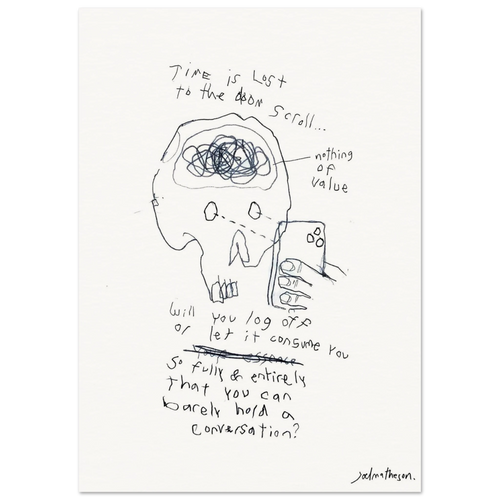 TIME is LOST
to the doom scroll...
nothing
of
value
Will you log off
or let it consume you
your essence
so fully & entirely
that you can
barely hold a
conversation?
joelmatheson.